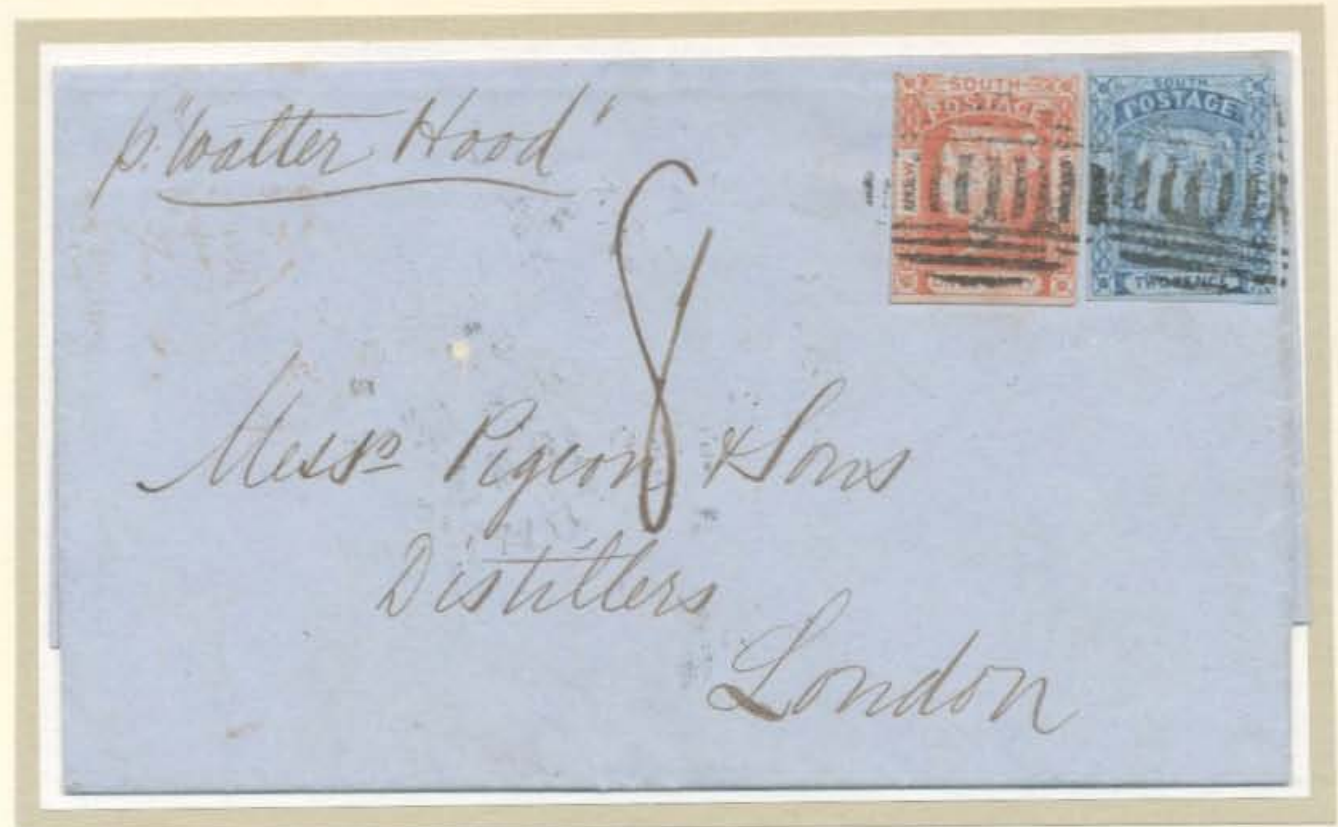 p. "Walter Hood"
SOUTH
POSTAGE
WALES
SOUTH
POSTAGE
WALES
TWO PENCE
8
Messrs Pigeon & Sons
Distillers
London